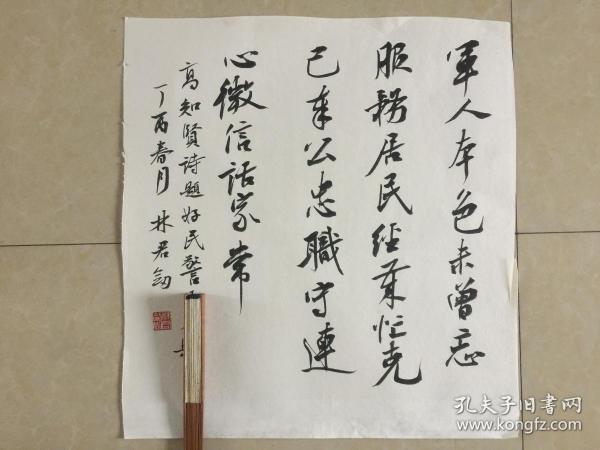 軍人本色未曾忘
服務居民經常忙克
己奉公忠職守連
心微信話家常
高知賢詩題好民警
丁酉春月 林君
孔夫子旧书网
www.kongfz.com